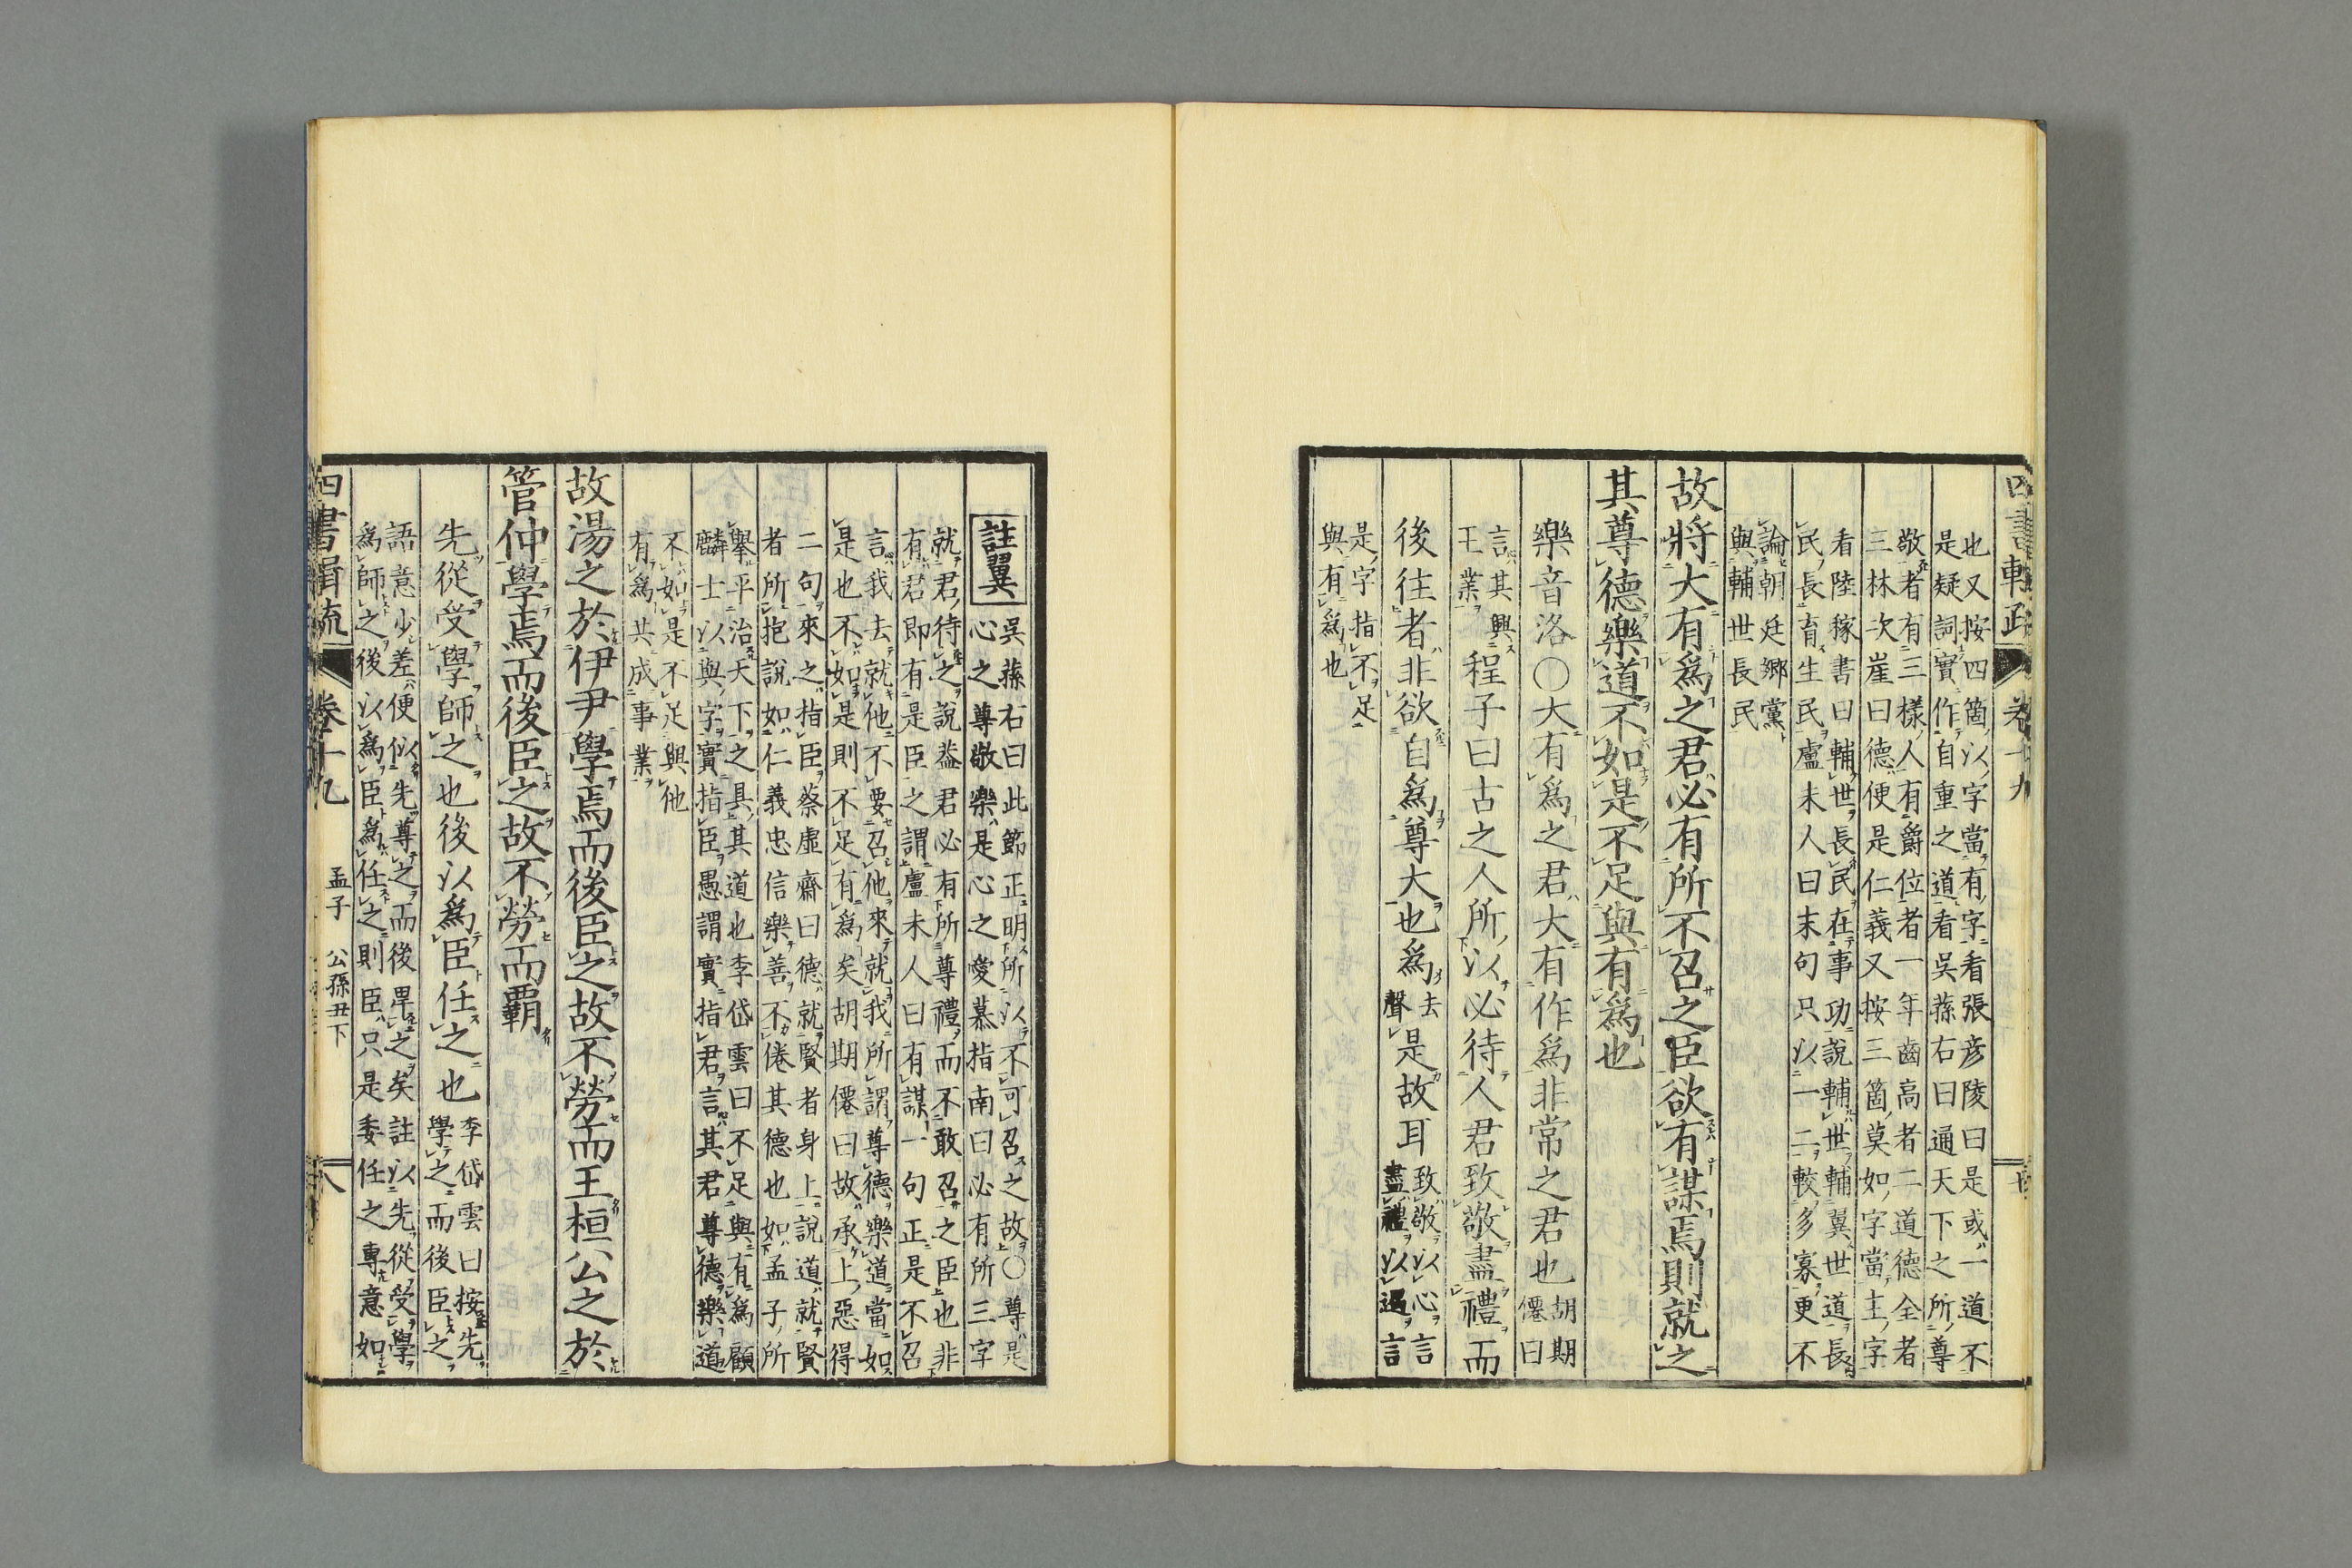 四書輯疏 卷十九
也又按四箇以字當有字看張彦陵曰是或一道不
是疑詞實作自重之道看吳蓀右曰通天下之所尊
敬者有三樣人有爵位者一年齒高者二道德全者
三林次崖曰德便是仁義又按三箇莫如字當主字
看陸稼書曰輔世長民在事功說輔世輔翼世道長
民長育生民盧未人曰末句只以一二較多寡更不
論朝廷鄉黨
與輔世長民
故將大有爲之君必有所不召之臣欲有謀焉則就之
其尊德樂道不如是不足與有爲也
樂音洛〇大有爲之君大有作爲非常之君也胡期僊曰
言其興王業程子曰古之人所以必待人君致敬盡禮而
後往者非欲自爲尊大也爲去聲是故耳致敬以心言盡禮以遇言
是字指不足
與有爲也
註翼
吳蓀右曰此節正明所以不可召之故〇尊是
心之尊敬樂是心之愛慕指南曰必有所三字
就君待之說葢君必有所尊禮而不敢召之臣也非
有君即有是臣之謂盧未人曰有謀一句正是不召
言我去就他不要召他來就我所謂尊德樂道當如
是也不如是則不足有爲矣胡期僊曰故承上惡得
二句來之指臣蔡虛齋曰德就賢者身上說道就賢
者所抱說如仁義忠信樂善不倦其德也如孟子所
擧平治天下之具其道也李岱雲曰不足與有爲顧
麟士以與字實指臣愚謂實指君言其君尊德樂道
不如是不足與他
有爲共成事業
故湯之於伊尹學焉而後臣之故不勞而王桓公之於
管仲學焉而後臣之故不勞而覇
先從受學師之也後以爲臣任之也李岱雲曰按先學之而後臣之
語意少差便似先尊之而後畀之矣註以先從受學
爲師之後以爲臣爲任之則臣只是委任之專意如
四書輯疏 卷十九 孟子 公孫丑下 八